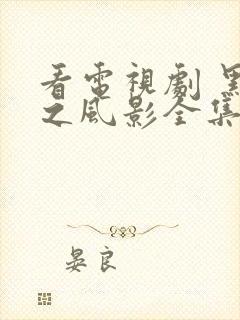 看電視劇 黑
之風影全集
晏良